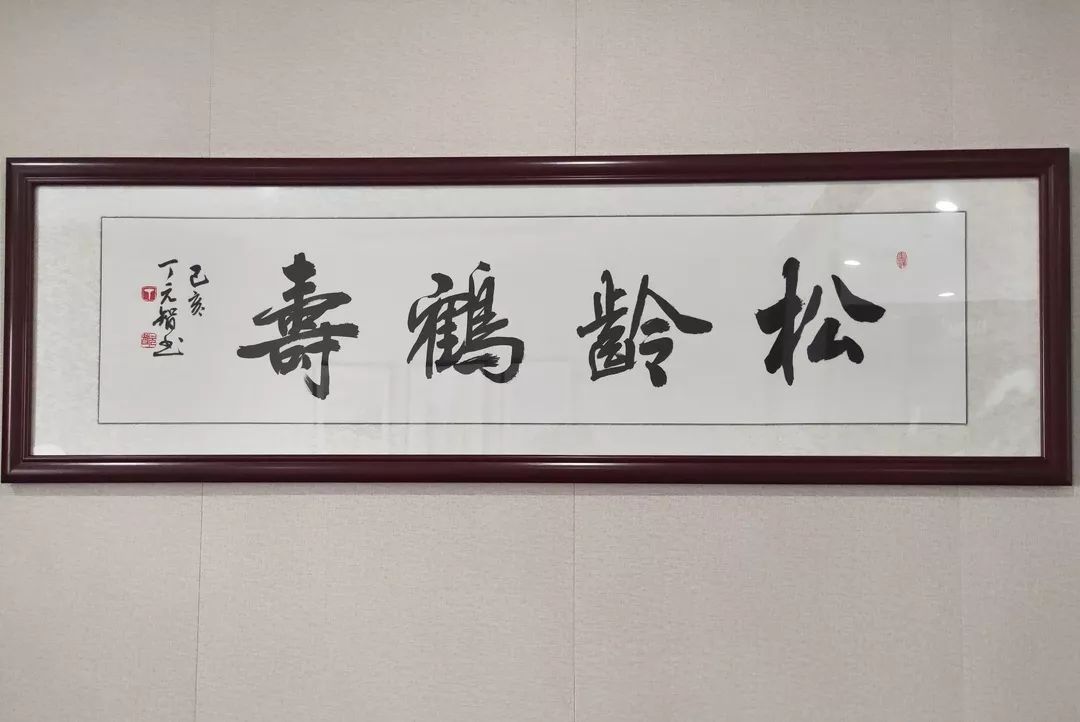 松齡鶴壽
己亥
丁元智书